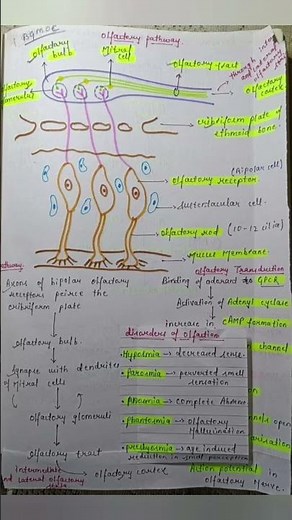 olfactory pathway.
olfactory bulb
Mitral cell
olfactory tract
olfactory glomerulus
through
olfactory cortex
cribriform plate of ethmoid bone.
(Bipolar cell)
olfactory receptor.
sustentacular cell.
olfactory rod (10-12 cilia)
Mucus Membrane
pathway.
Axons of bipolar olfactory
receptors peirce the
cribriform plate
olfactory bulb.
synapse with dendrites
of mitral cells
olfactory glomeruli
olfactory tract
Intermediate
and lateral olfactory
olfactory cortex
olfactory Transduction
Binding of odorant to GPCR
Activation of Adenyl cyclase
increase in cAMP formation
channel
disorders of olfaction
• Hyposmia → decreased sense.
• Parosmia → perverted smell
sensation
• Anosmia → complete Absence
• Phantosmia → olfactory
Hallucination
• presbyosmia → age induced
reduction in smell perception
open
Action potential in
olfactory nerve.